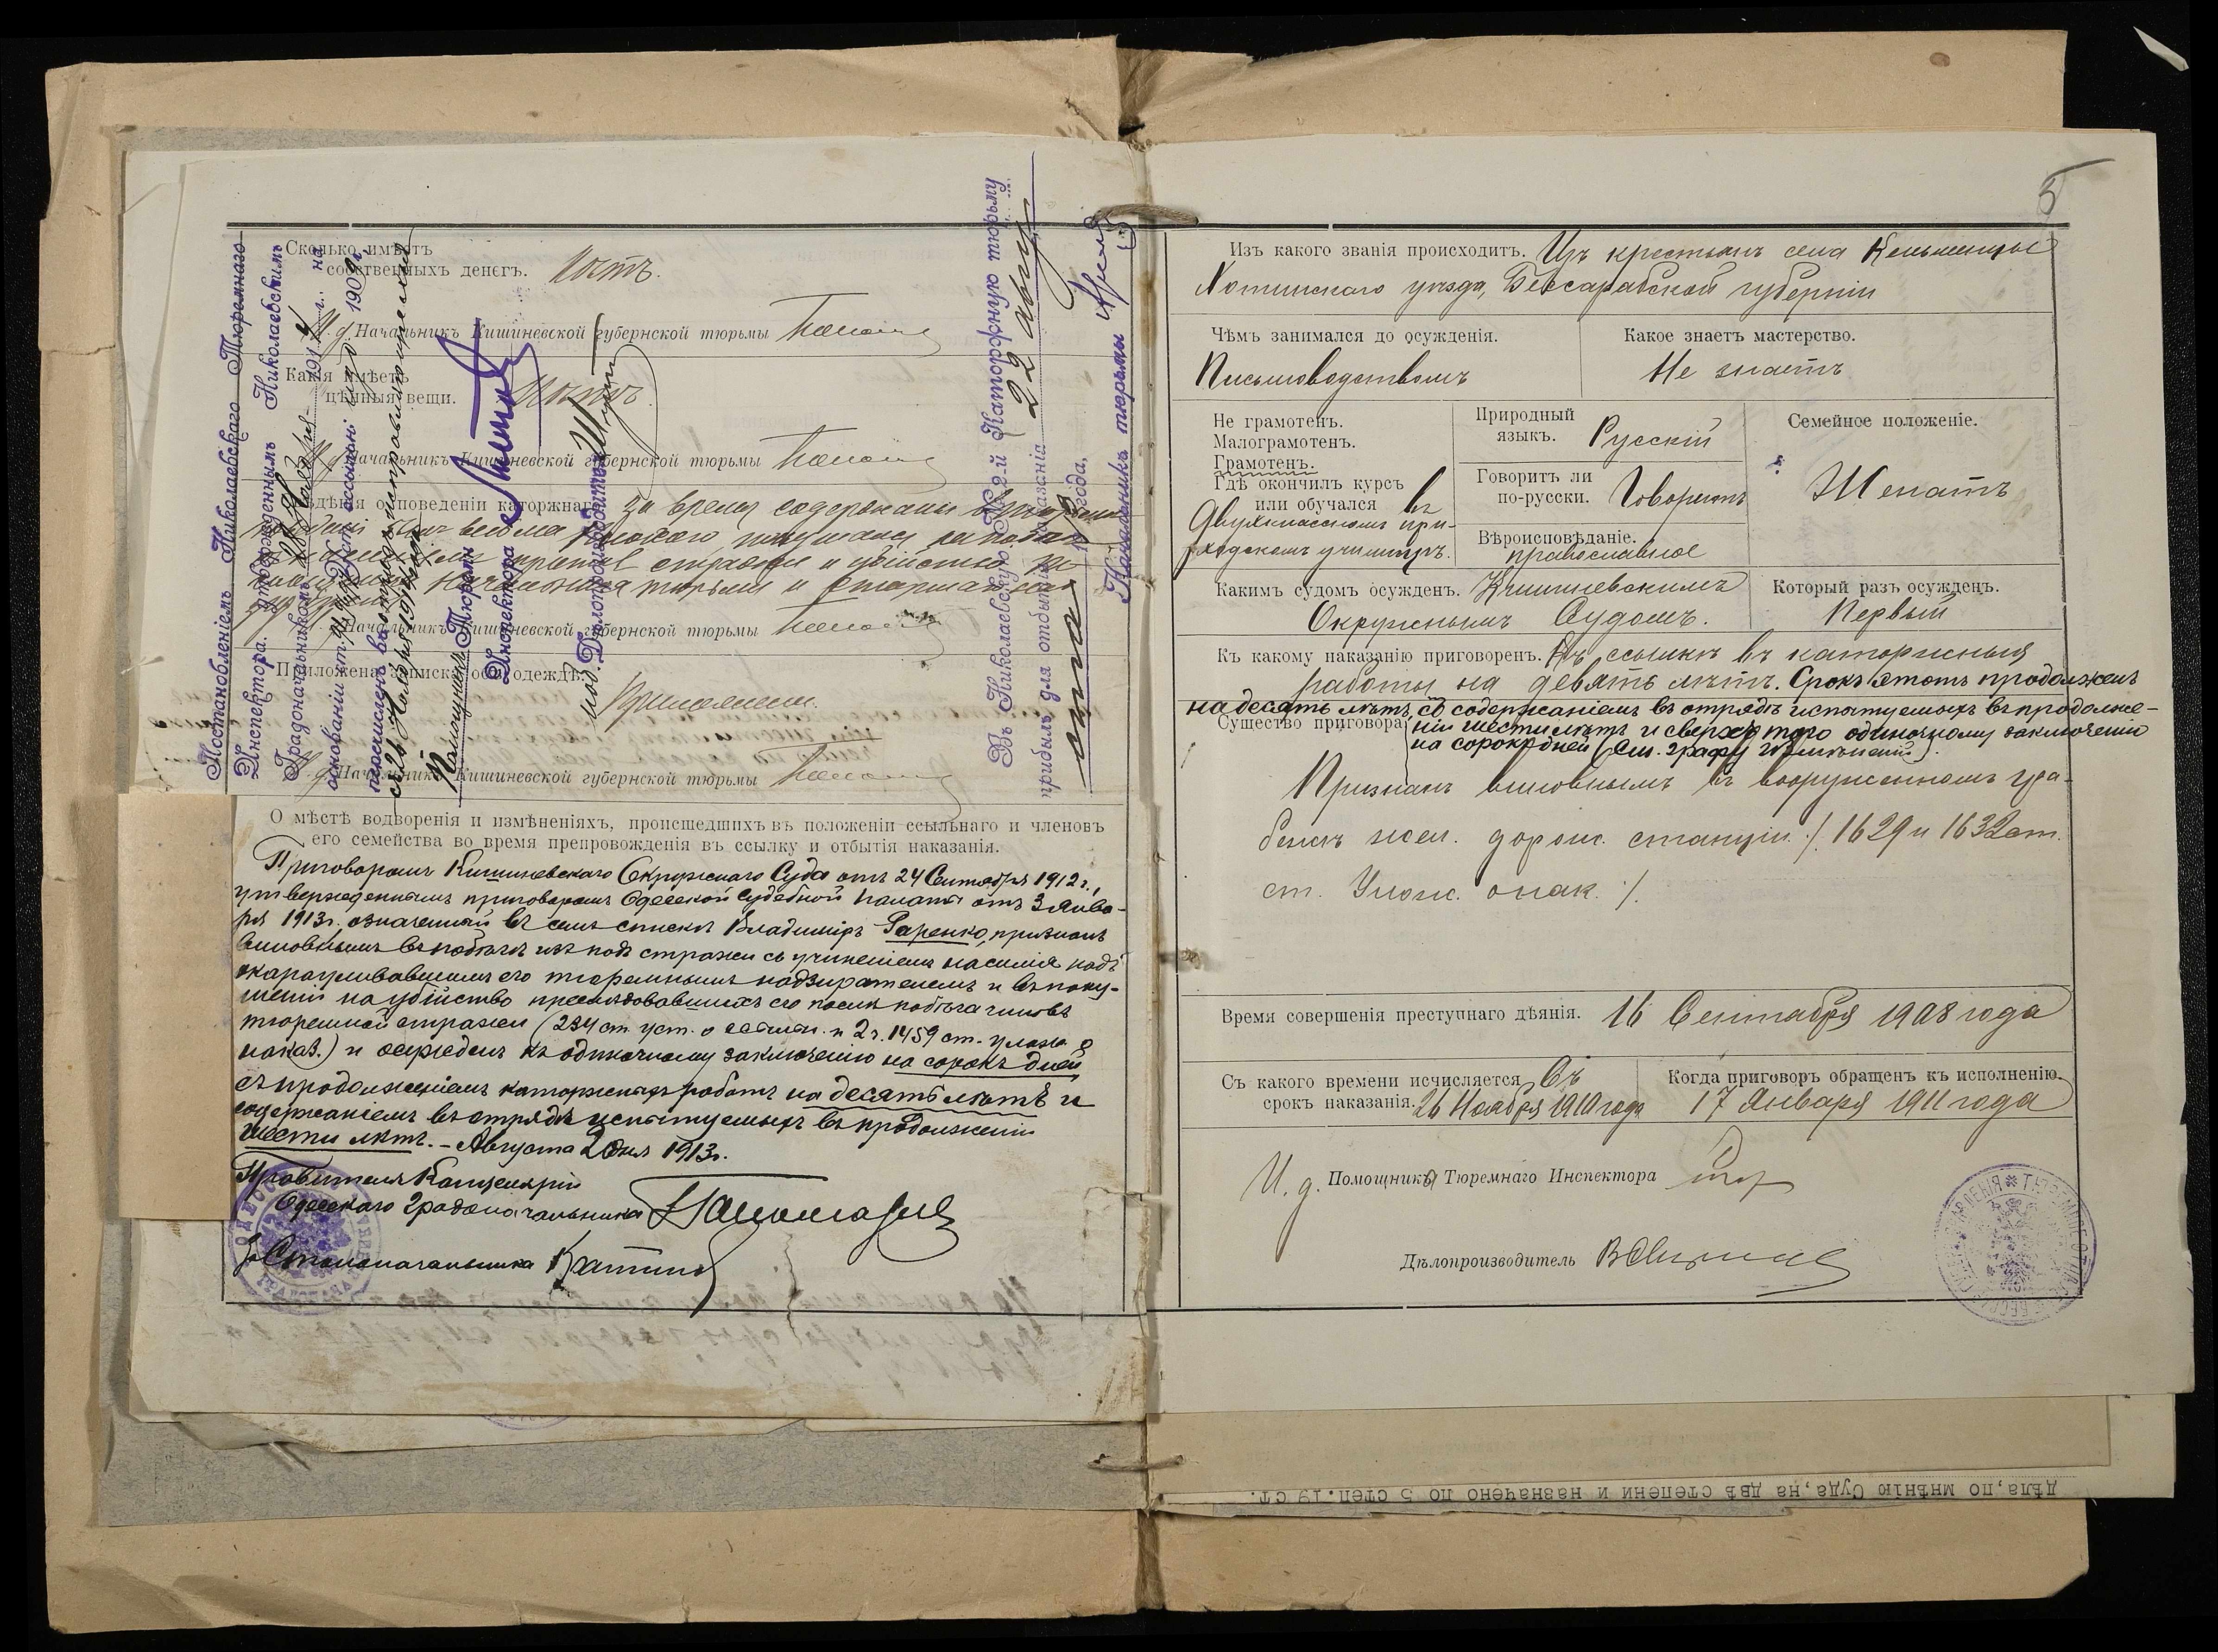 Сколько имѣетъ
собственныхъ денегъ. Нѣтъ.
И. д. Начальникъ Кишиневской губернской тюрьмы
Какія имѣетъ
цѣнныя вещи. Нѣтъ.
И. д. Начальникъ Кишиневской губернской тюрьмы
Свѣдѣнія о поведеніи каторжнаго. За время содержанія
былъ весьма плохого
противъ стражи и убійство
Начальника тюрьмы и Старшаго
И. д. Начальникъ Кишиневской губернской тюрьмы
Приложена записка объ одеждѣ.
Приложена.
И. д. Начальникъ Кишиневской губернской тюрьмы
Постановленіемъ Николаевскаго Тюремнаго
Инспектора. утвержденнымъ Николаевскимъ
Градоначальникомъ 1914 г. на
основаніи ст. Уст. о ссыльн. изд. 1909 г.
перечисленъ въ отрядъ исправляющихся
съ
Помощникъ Тюремн.
Инспектора
Дѣлопроизводитель
Въ Николаевскую № 2-й Каторжную тюрьму
прибылъ для отбытія наказанія 22 Августа
19 года.
Начальникъ тюрьмы
О мѣстѣ водворенія и измѣненіяхъ, происшедшихъ въ положеніи ссыльнаго и членовъ
его семейства во время препровожденія въ ссылку и отбытія наказанія.
Приговоромъ Кишиневскаго Окружнаго Суда отъ 24 Сентября 1912 г.,
утвержденнымъ приговоромъ Одесской Судебной Палаты отъ 3 Янва-
ря 1913 г. означенный въ семъ спискѣ Владимиръ Гаренко, признанъ
виновнымъ въ побѣгѣ изъ подъ стражи съ учиненіемъ насилія надъ
окарауливавшимъ его тюремнымъ надзирателемъ и въ поку-
шеніи на убійство преслѣдовавшихъ его послѣ побѣга чиновъ
тюремной стражи (234 ст. уст. о ссыльн. и 2 ч. 1459 ст. улож. о
наказ.) и осужденъ къ одиночному заключенію на сорокъ дней
съ продолженіемъ каторжныхъ работъ на десять лѣтъ и
содержаніемъ въ отрядѣ испытуемыхъ въ продолженіи
шести лѣтъ. – Августа 20 дня 1913 г.
Правитель Канцеляріи
Одесскаго Градоначальника
За Столоначальника
5
Изъ какого званія происходитъ. Изъ крестьянъ села Кельменцы
Хотинскаго уѣзда, Бессарабской губерніи
Чѣмъ занимался до осужденія.
Письмоводствомъ
Какое знаетъ мастерство.
Не знаетъ
Не грамотенъ.
Малограмотенъ.
Грамотенъ.
Гдѣ окончилъ курсъ
или обучался въ
Двухклассномъ при-
ходскомъ училищѣ.
Природный
языкъ. Русскій
Говоритъ ли
по-русски. Говоритъ
Вѣроисповѣданіе.
православное
Семейное положеніе.
Женатъ
Какимъ судомъ осужденъ. Кишиневскимъ
Окружнымъ Судомъ.
Который разъ осужденъ.
Первый
Къ какому наказанію приговоренъ. Къ ссылкѣ въ каторжныя
работы на девять лѣтъ. Срокъ этотъ продолженъ
на десять лѣтъ, съ содержаніемъ въ отрядѣ испытуемыхъ въ продолже-
ніи шести лѣтъ и сверхъ того одиночному заключенію
на сорокъ дней (См. графу измѣненій).
Существо приговора.
Признанъ виновнымъ въ вооруженномъ гра-
бежѣ жел. дорож. станціи. /. 1629 и 1632 ст.
ст. Улож. о нак. /.
Время совершенія преступнаго дѣянія. 16 Сентября 1908 года
Съ какого времени исчисляется
срокъ наказанія. Съ
26 Ноября 1910 года
Когда приговоръ обращенъ къ исполненію.
17 Января 1911 года
И. д. Помощника Тюремнаго Инспектора
Дѣлопроизводитель
дѣла, по мнѣнію Суда, на двѣ степени и назначено по 5 степ. 19 ст.